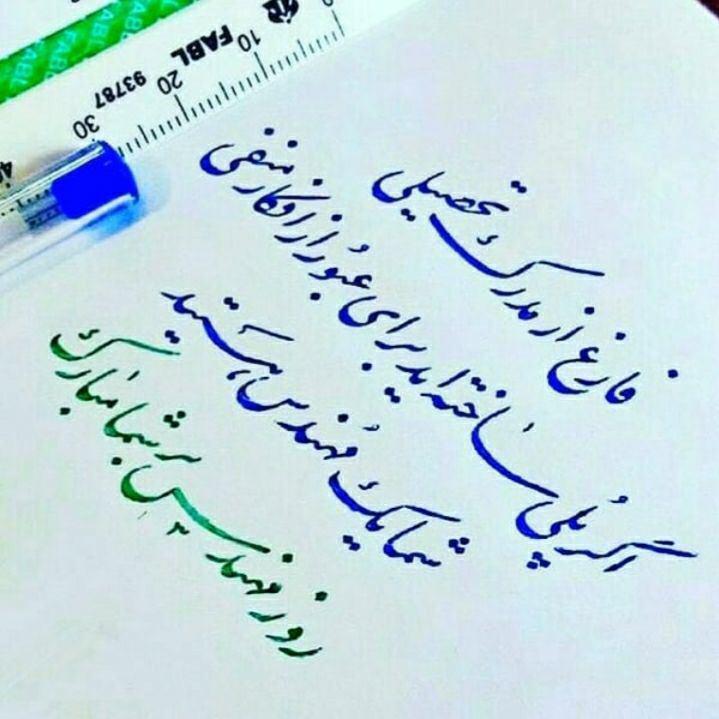 FABL
93787
0
10
20
30
فارغ از مدرک تحصیلی
اگر پلی ساخته اید برای عبور از افکار منفی
شما یک مهندس هستید
روز مهندس بر شما مبارک